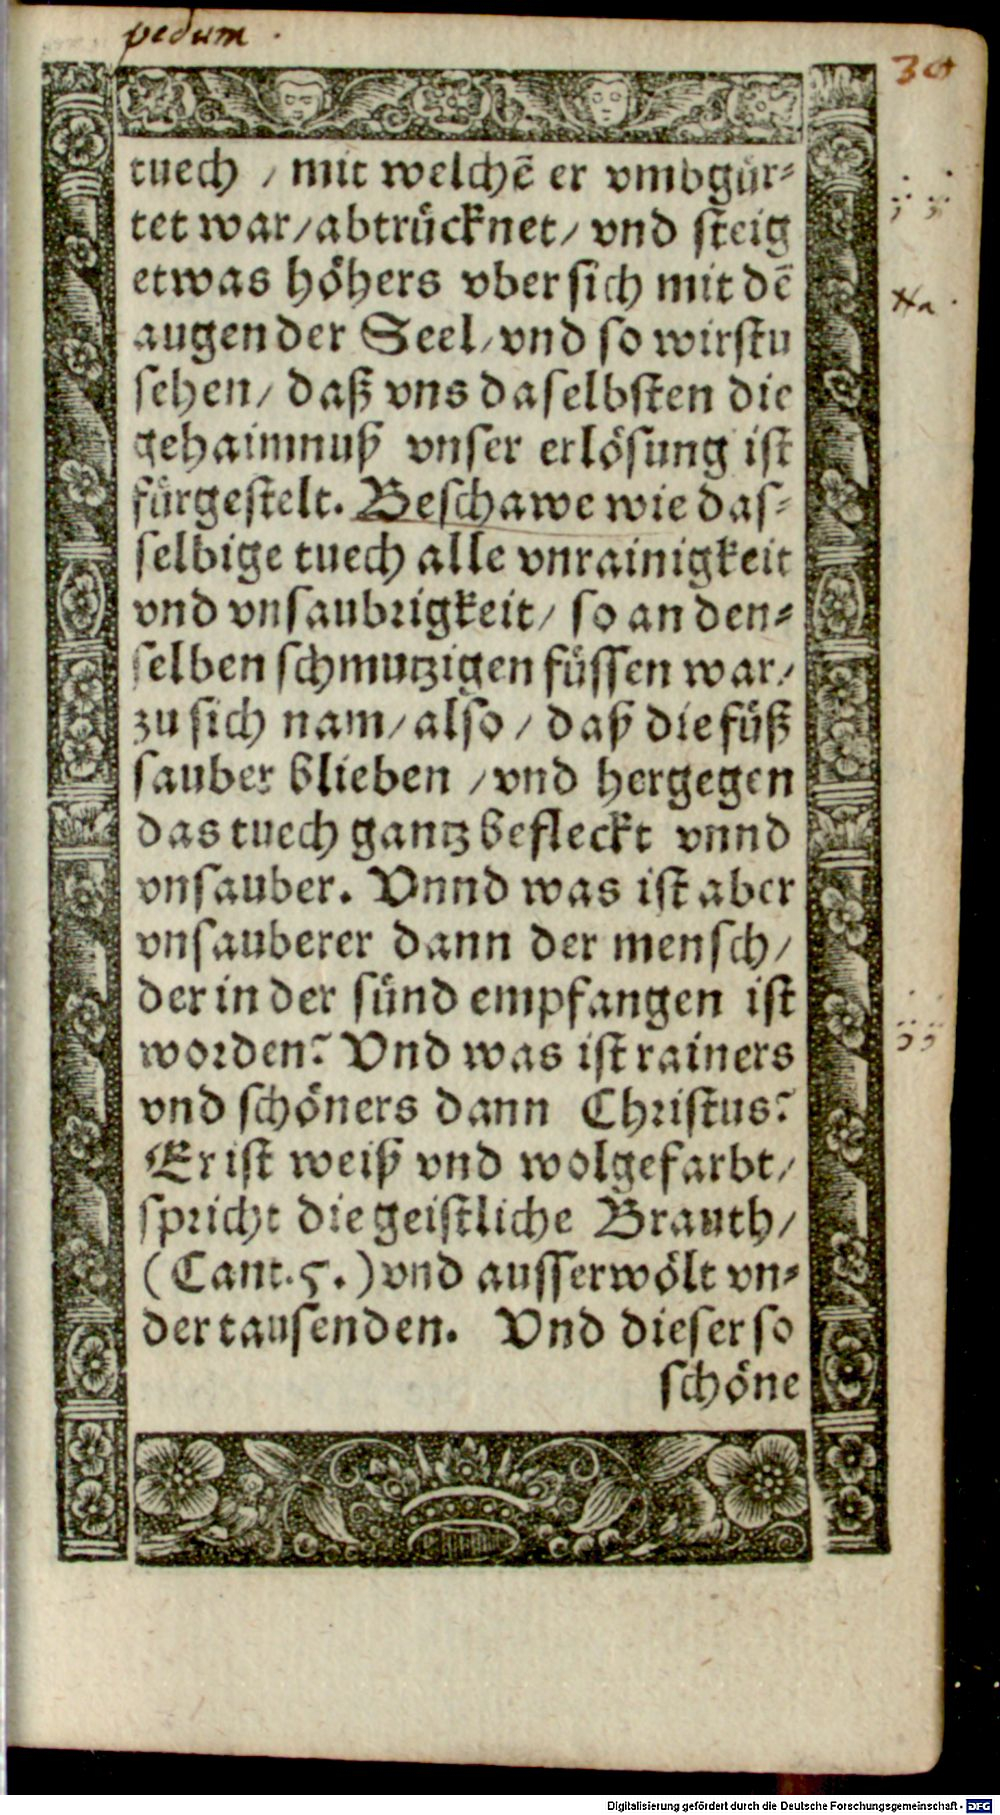 pedum.
30
tuech / mit welchē er vmbgür⸗
tet war/abtrücknet/ vnd steig
etwas höhers vber sich mit dē
augen der Seel/vnd so wirstu
sehen/ daß vns daselbsten die
gehaimnuß vnser erlösung ist
fürgestelt. Beschawe wie das⸗
selbige tuech alle vnrainigkeit
vnd vnsaubrigkeit/ so an den⸗
selben schmutzigen füssen war/
zu sich nam/also/ daß die füß
sauber blieben /vnd hergegen
das tuech gantz befleckt vnnd
vnsauber. Vnnd was ist aber
vnsauberer dann der mensch/
der in der sünd empfangen ist
worden? Vnd was ist rainers
vnd schöners dann Christus?
Er ist weiß vnd wolgefarbt/
spricht die geistliche Brauth/
(Cant.5.)vnd ausserwölt vn⸗
der tausenden. Vnd dieser so
schöne
Digitalisierung gefördert durch die Deutsche Forschungsgemeinschaft - DFG